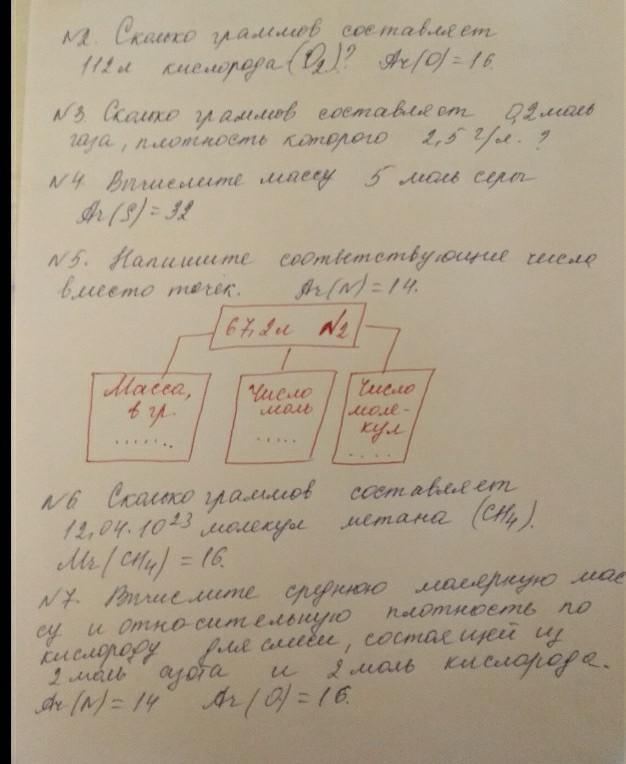 №2. Сколько граммов составляет
112 л кислорода (O₂)? Ar(O)=16.
№3. Сколько граммов составляет 0,2 моль
газа, плотность которого 2,5 г/л.?
№4 Вычислите массу 5 моль серы
Ar(S)=32
№5. Напишите соответствующие числа
вместо точек. Ar(N)=14.
67,2 л N2
Масса,
в гр.
.......
Число
моль
.....
Число
моле-
кул
....
№6 Сколько граммов составляет
12,04·10²³ молекул метана (CH₄).
Mr(CH₄)=16.
№7. Вычислите среднюю молярную мас
су и относительную плотность по
кислороду для смеси, состоящей из
2 моль азота и 2 моль кислорода.
Ar(N)=14 Ar(O)=16.